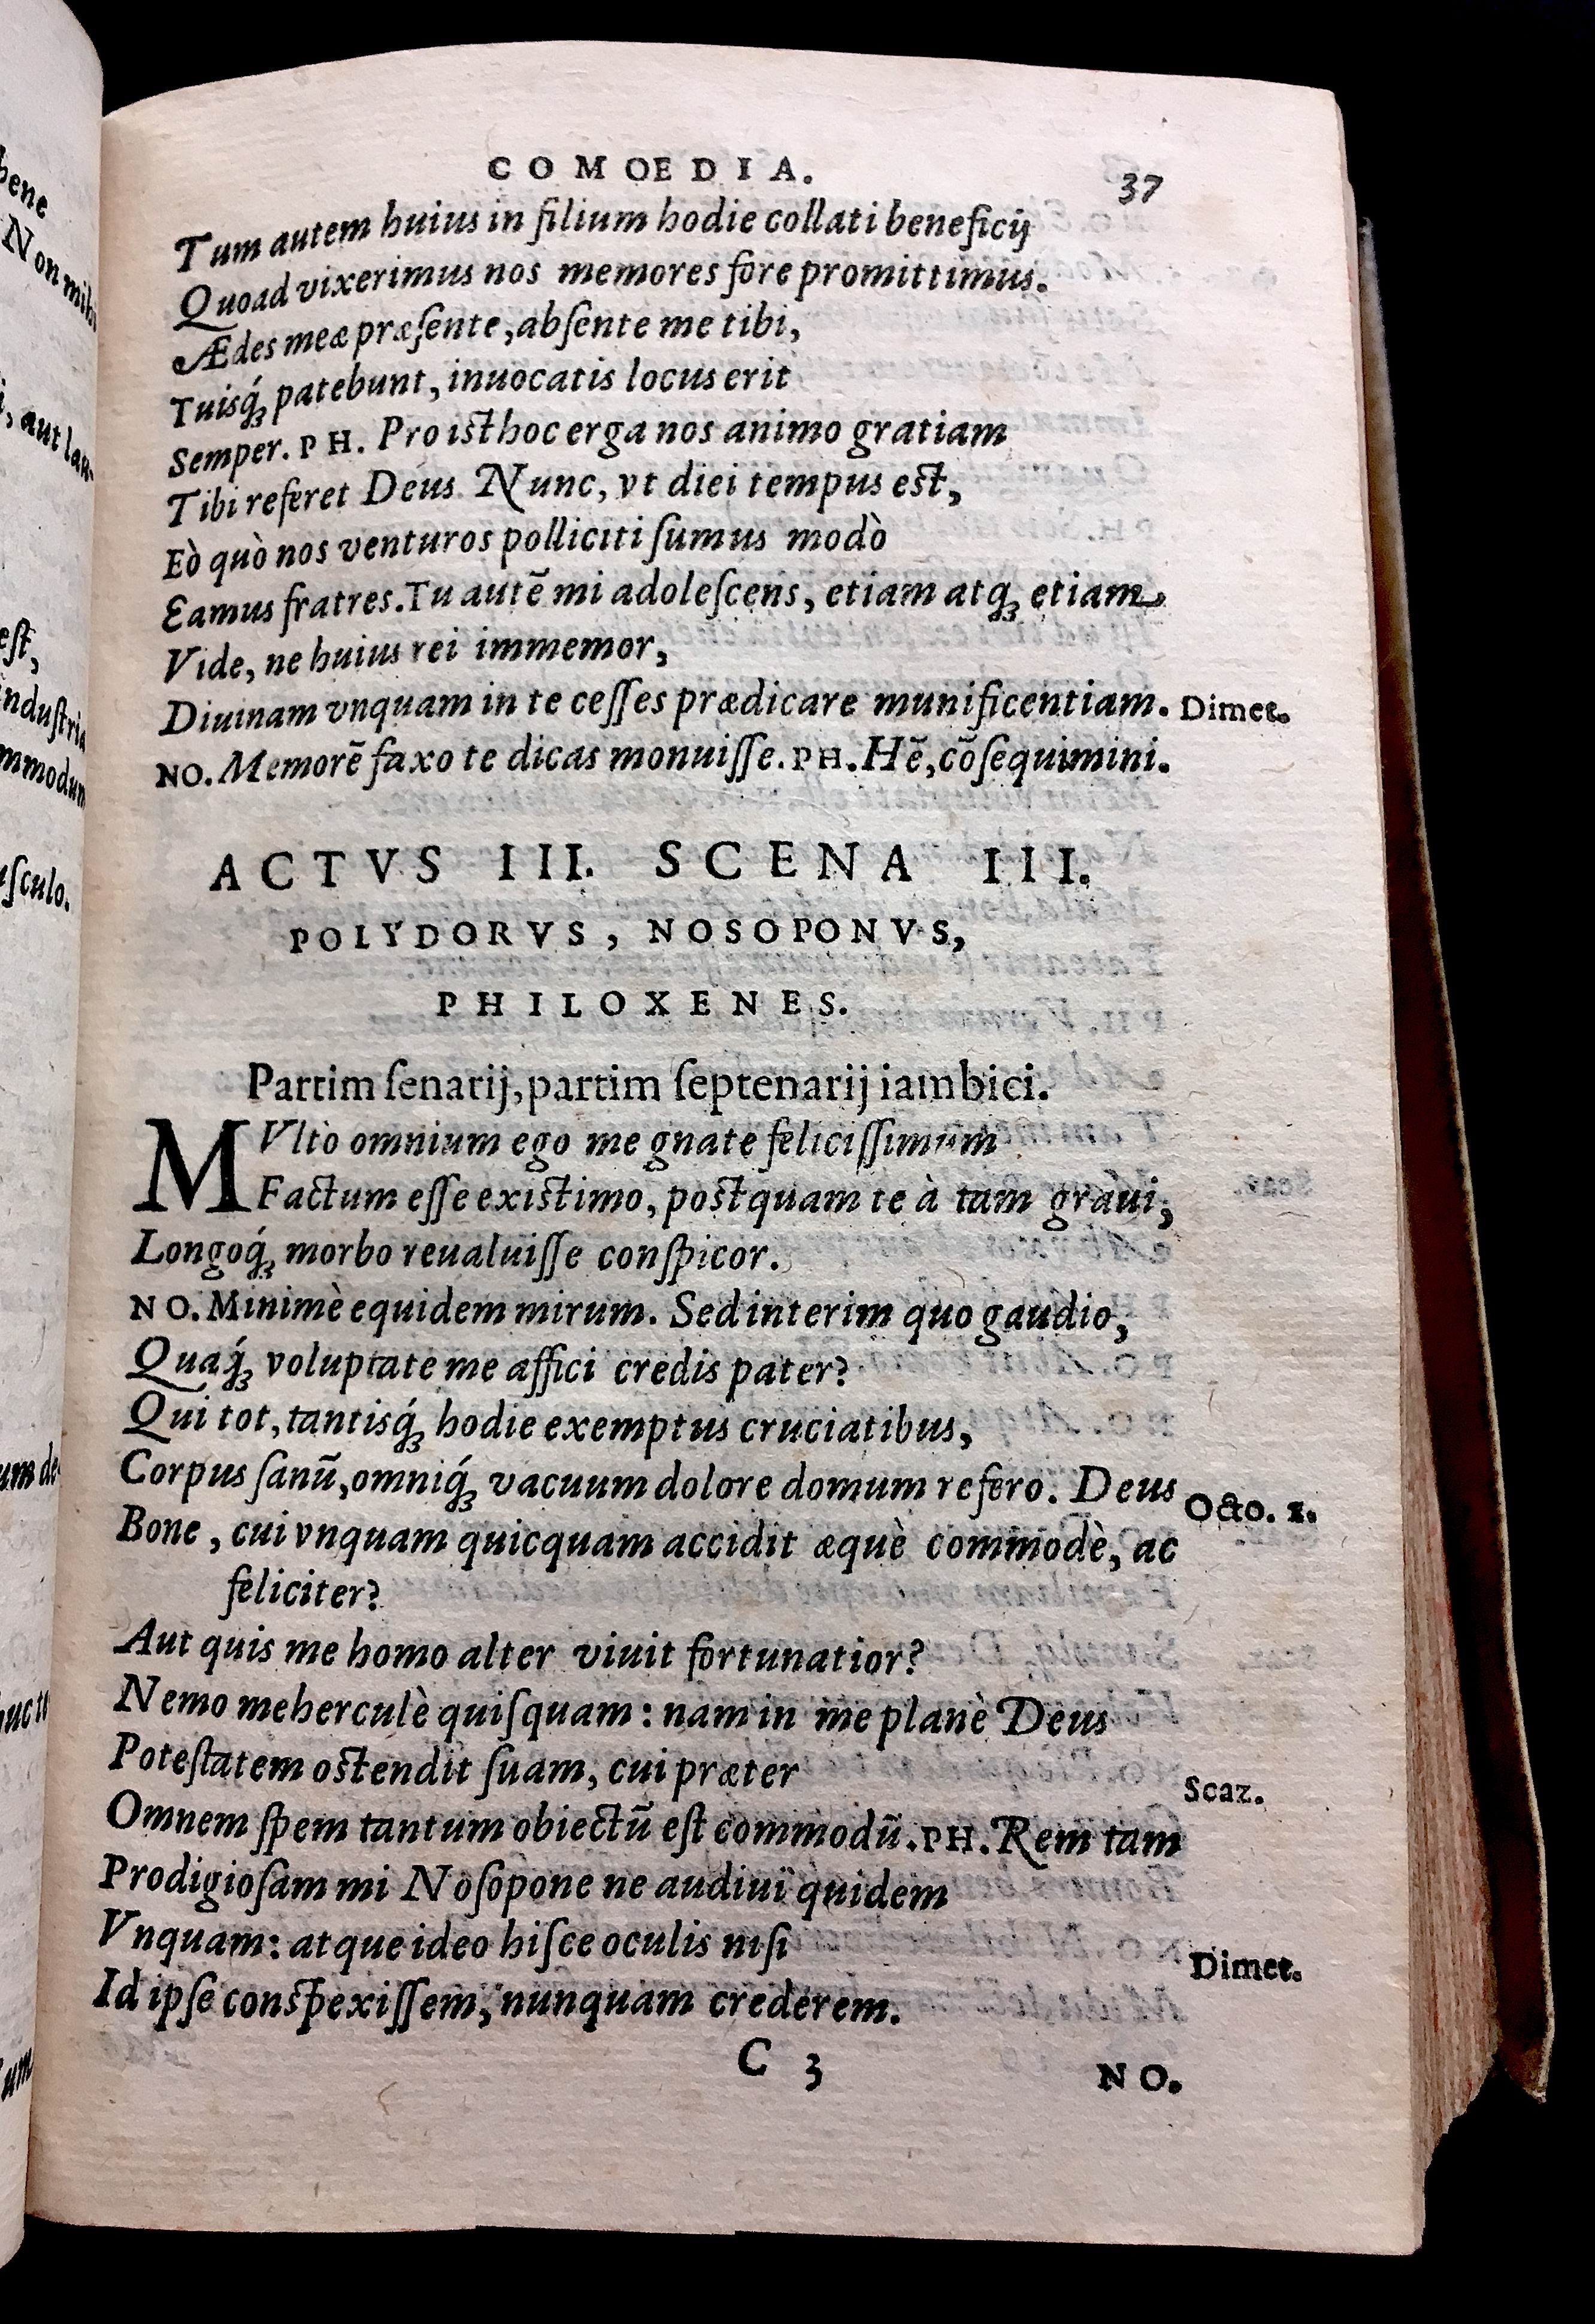 COMOEDIA.
37
Tum autem huius in filium hodie collati beneficij
Quoad vixerimus nos memores fore promittimus.
Ædes meæ præsente, absente me tibi,
Tuisq́; patebunt, inuocatis locus erit
Semper. PH. Pro isthoc erga nos animo gratiam
Tibi referet Deus. Nunc, vt diei tempus est,
Eò quò nos venturos polliciti sumus modò
Eamus fratres. Tu autē mi adolescens, etiam atq; etiam
Vide, ne huius rei immemor,
Diuinam vnquam in te cesses prædicare munificentiam. Dimet.
NO. Memorē faxo te dicas monuisse. PH. Hē, cōsequimini.
ACTVS III. SCENA III.
POLYDORVS, NOSOPONVS,
PHILOXENES.
Partim senarij, partim septenarij iambici.
MVltò omnium ego me gnate felicissimum
Factum esse existimo, postquam te à tam graui,
Longoq́; morbo reualuisse conspicor.
NO. Minimè equidem mirum. Sed interim quo gaudio,
Quaq́; voluptate me affici credis pater?
Qui tot, tantisq́; hodie exemptus cruciatibus,
Corpus sanū, omniq́; vacuum dolore domum refero. Deus Octo. 1.
Bone, cui vnquam quicquam accidit æquè commodè, ac
feliciter?
Aut quis me homo alter viuit fortunatior?
Nemo meherculè quisquam: nam in me planè Deus
Potestatem ostendit suam, cui præter Scaz.
Omnem spem tantum obiectū est commodū. PH. Rem tam
Prodigiosam mi Nosopone ne audiui quidem
Vnquam: atque ideo hisce oculis nisi Dimet.
Id ipse conspexissem, nunquam crederem.
C 3
NO.
bene
Non mihi
i, aut lau-
est,
industria
mmodum
usculo.
um de-
huc te
um